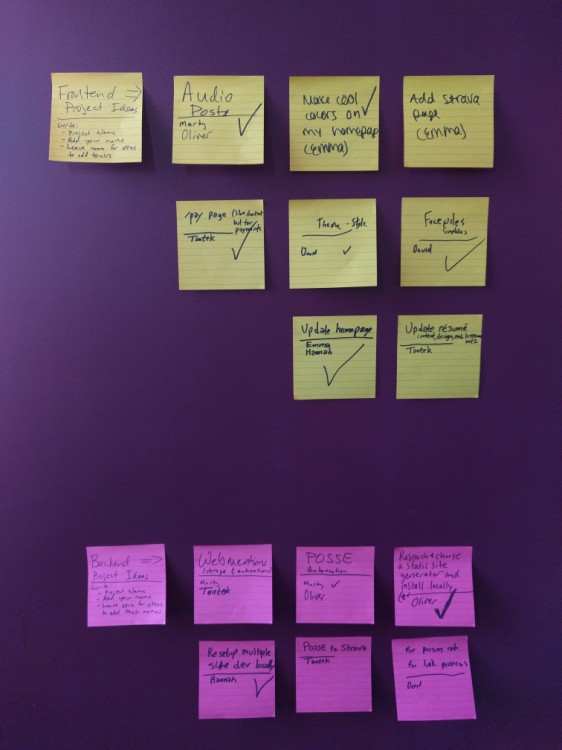 Frontend =>
Project Ideas
Write:
- Project Name
- Add your name
- Leave room for others
to add theirs
Audio
Posts
Marty
Oliver
Make cool
covers on
my homepage
(Emma)
Add Strava
page
(Emma)
/pay page (like /contact
but for
payments
Tantek
Theme - Style
David
Facepiles
David
Update homepage
Emma
Hannah
Update résumé
content, design, and
Tantek
Backend =>
Project Ideas
Write
- Project Name
- Add your name
- Leave space for others
to add their names
Webmentions
(storage & automation)
Marty
Tantek
POSSE
Automation
Marty
Oliver
Research & choose
a static site
generator and
install locally
Oliver
Resetup multiple
site dev locally
Hannah
POSSE to Strava
Tantek
For
for
David